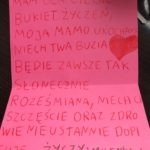 MAM DLA CIEBIE
BUKIET ŻYCZEŃ,
MOJA MAMO UKOCHANA
NIECH TWA BUZIA
BĘDZIE ZAWSZE TAK
SŁONECZNIE
ROZEŚMIANA, NIECH CI
SZCZĘŚCIE ORAZ ZDRO
WIE NIEUSTANNIE DOPI
ŻYCZY